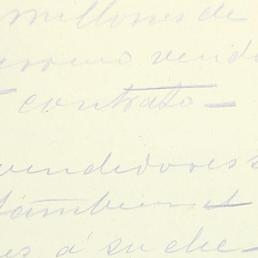 millones de
terreno vend
contrato
vendedores
tambien el
es á su che